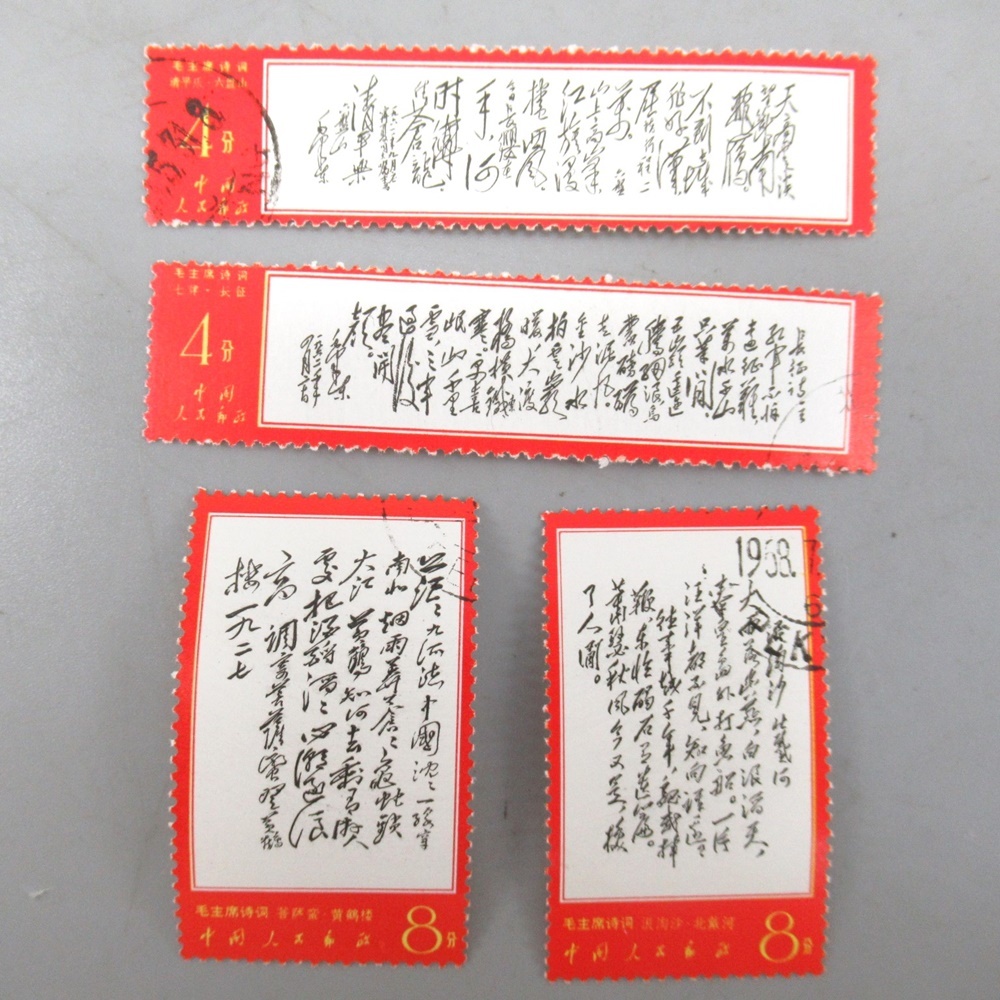 毛主席诗词
清平乐·六盘山
4分
中国
人民邮政
天高云淡
望断南
飞雁
不到长城
非好汉
屈指行程二
万 六盘
山上高峰
江旗漫
卷西风
今日长缨在
手 何
时缚
住苍龙
清平乐
六盘山
毛泽东
毛主席诗词
七律·长征
4分
中国
人民邮政
长征诗一首
红军不怕
远征难
万水千山
只等闲
五岭逶迤
腾细浪乌
蒙磅礴
走泥丸
金沙水
拍云崖
暖大渡
桥横铁索
寒更喜
岷山千里
雪三军
过后
尽开
颜
毛泽东
茫茫九派流中国沈沈一线穿
南北烟雨莽苍苍龟蛇锁
大江黄鹤知何去剩有游人
处把酒酹滔滔心潮逐浪
高 调寄菩萨蛮登黄鹤
楼 一九二七
毛主席诗词 菩萨蛮·黄鹤楼
中国人民邮政
8分
1968.
浪淘沙 北戴河
大雨落幽燕，白浪滔天，
秦皇岛外打鱼船。一片
汪洋都不见，知向谁边？
往事越千年，魏武挥
鞭，东临碣石有遗篇。
萧瑟秋风今又是，换
了人间。
毛主席诗词 浪淘沙·北戴河
中国人民邮政
8分